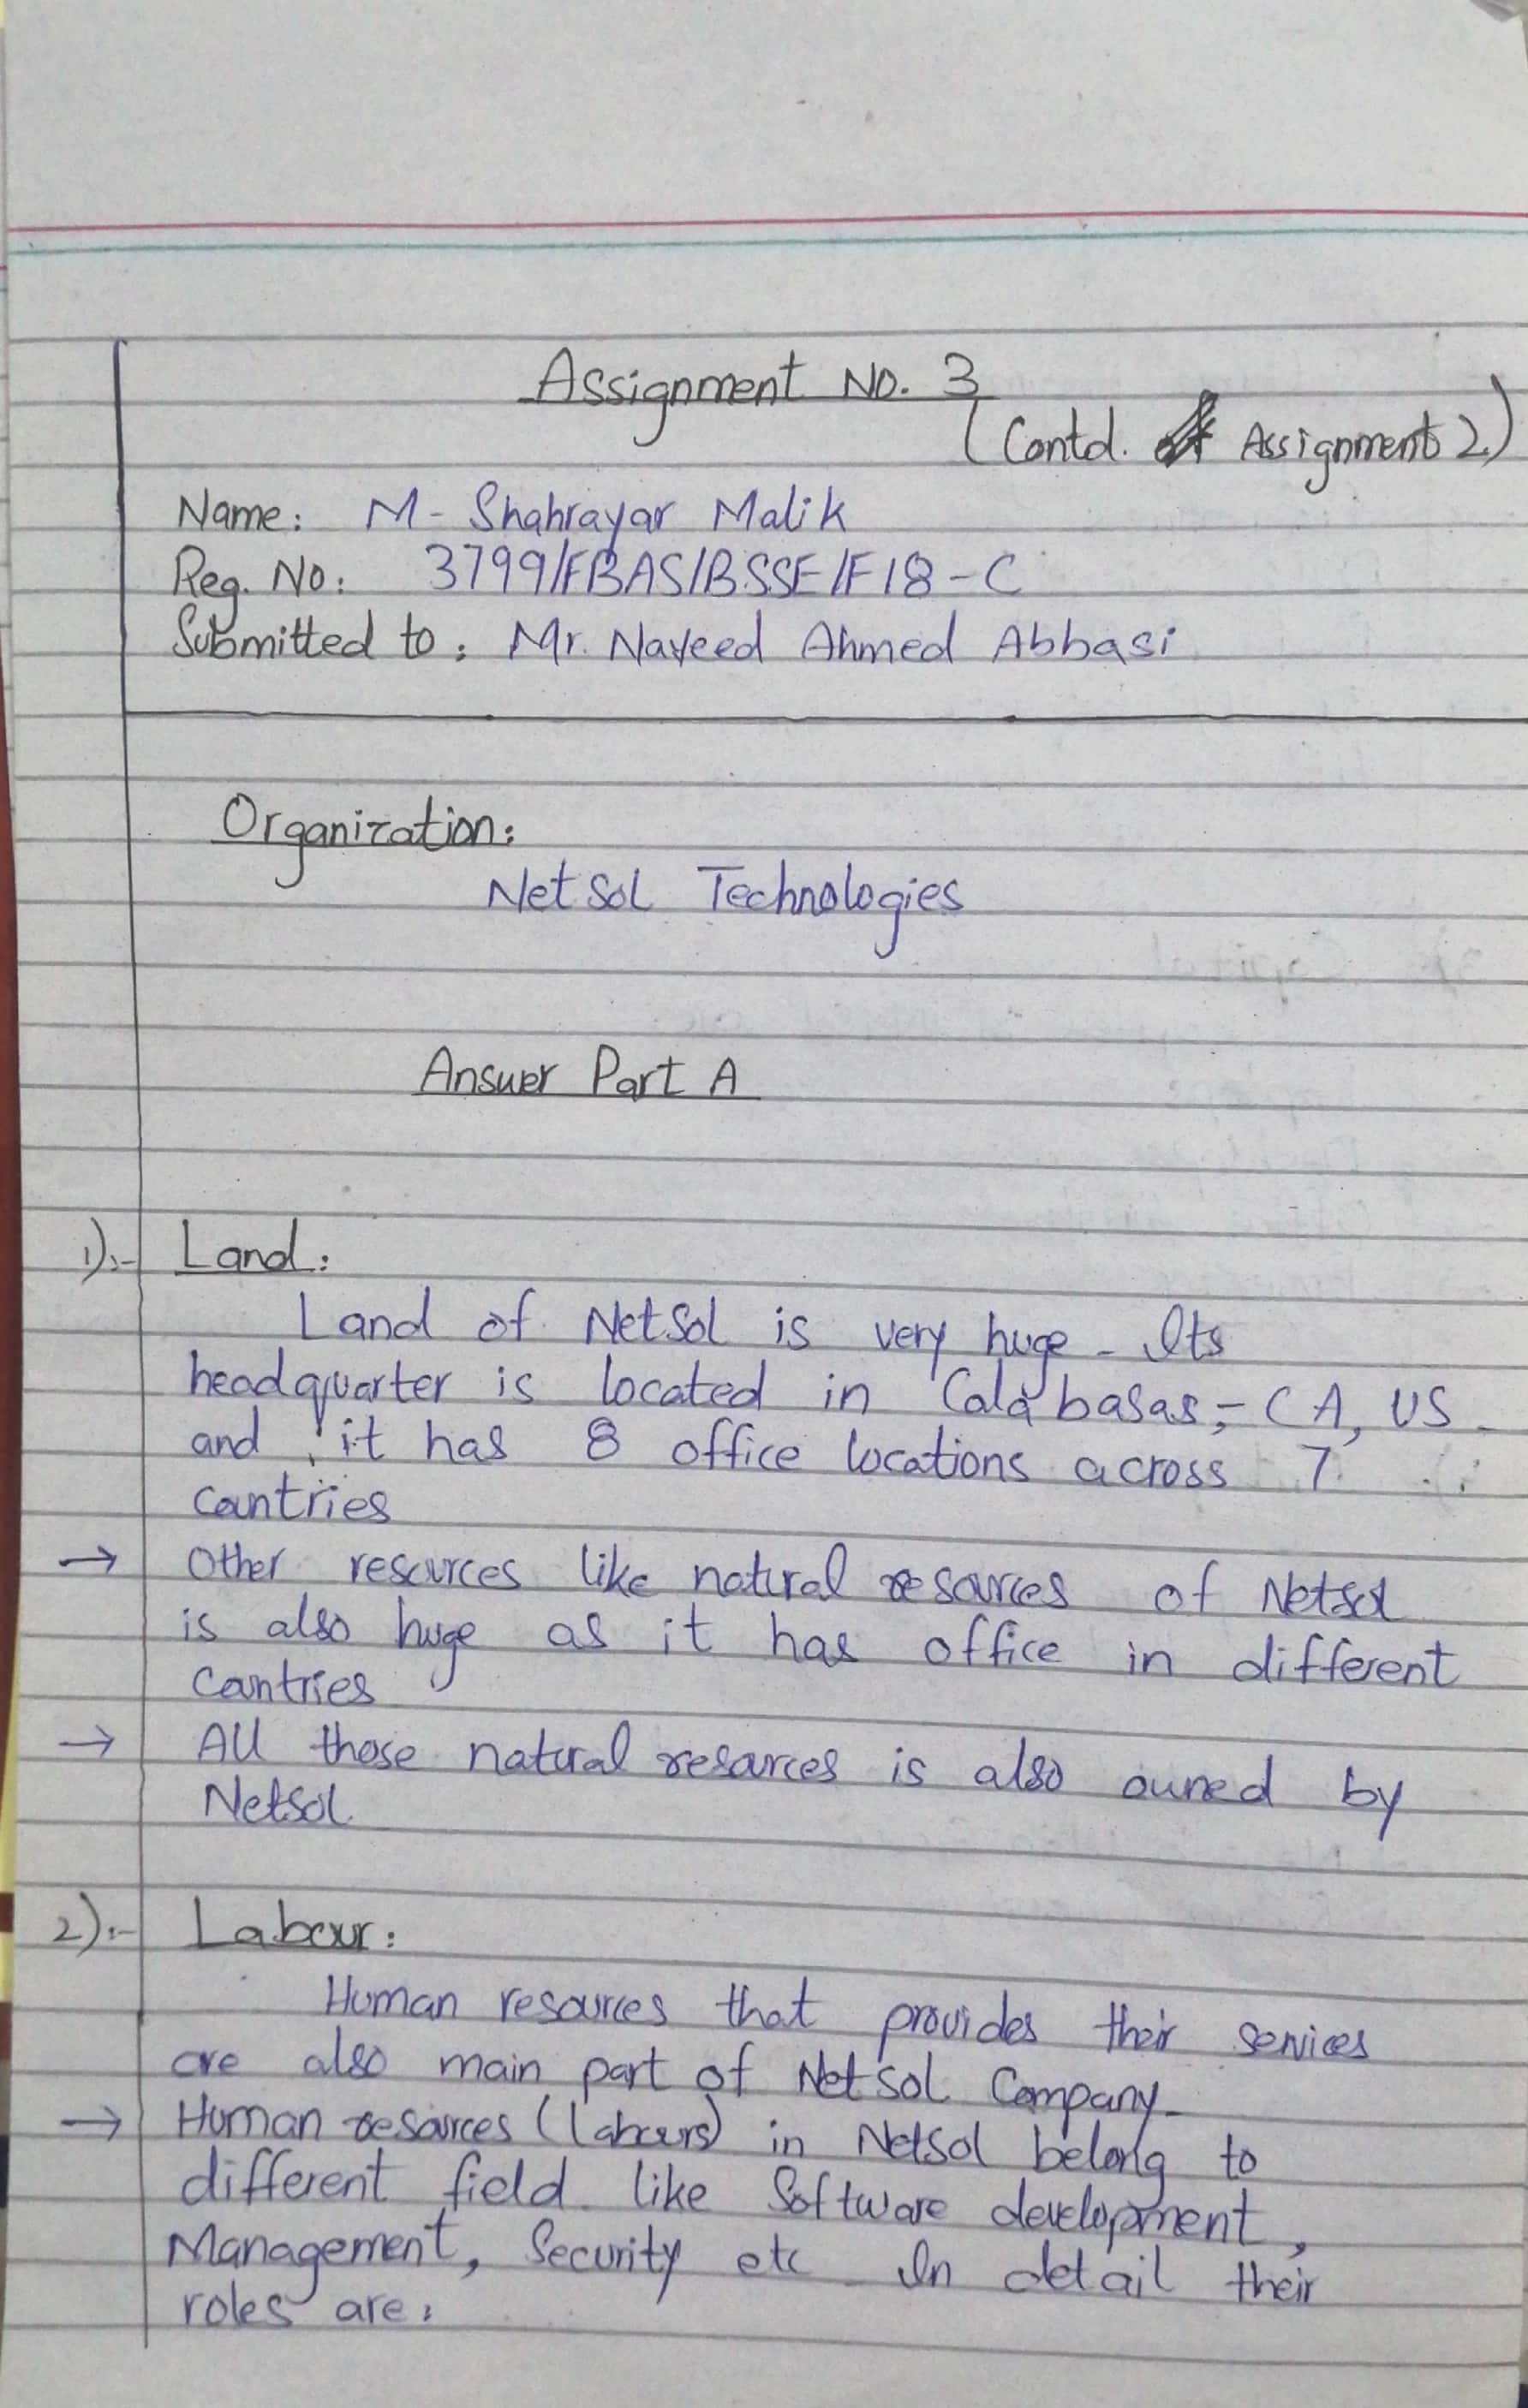 Assignment No. 3
(Contd. Assignment 2)
Name: M- Shahrayar Malik
Reg. No: 3799/FBAS/BSSE/F18-C
Submitted to: Mr. Naveed Ahmed Abbasi
Organization:
NetSol Technologies
Answer Part A
1):- Land:
Land of NetSol is very huge - Its
headquarter is located in Calabasas, CA, US -
and it has 8 office locations across 7
countries
→ Other resources like natural resources of Netsol
is also huge as it has office in different
countries
→ All those natural resources is also owned by
Netsol
2):- Labour:
Human resources that provides their services
are also main part of NetSol Company-
→ Human resources (labours) in Netsol belong to
different field like Software development,
Management, Security etc - In detail their
roles are: